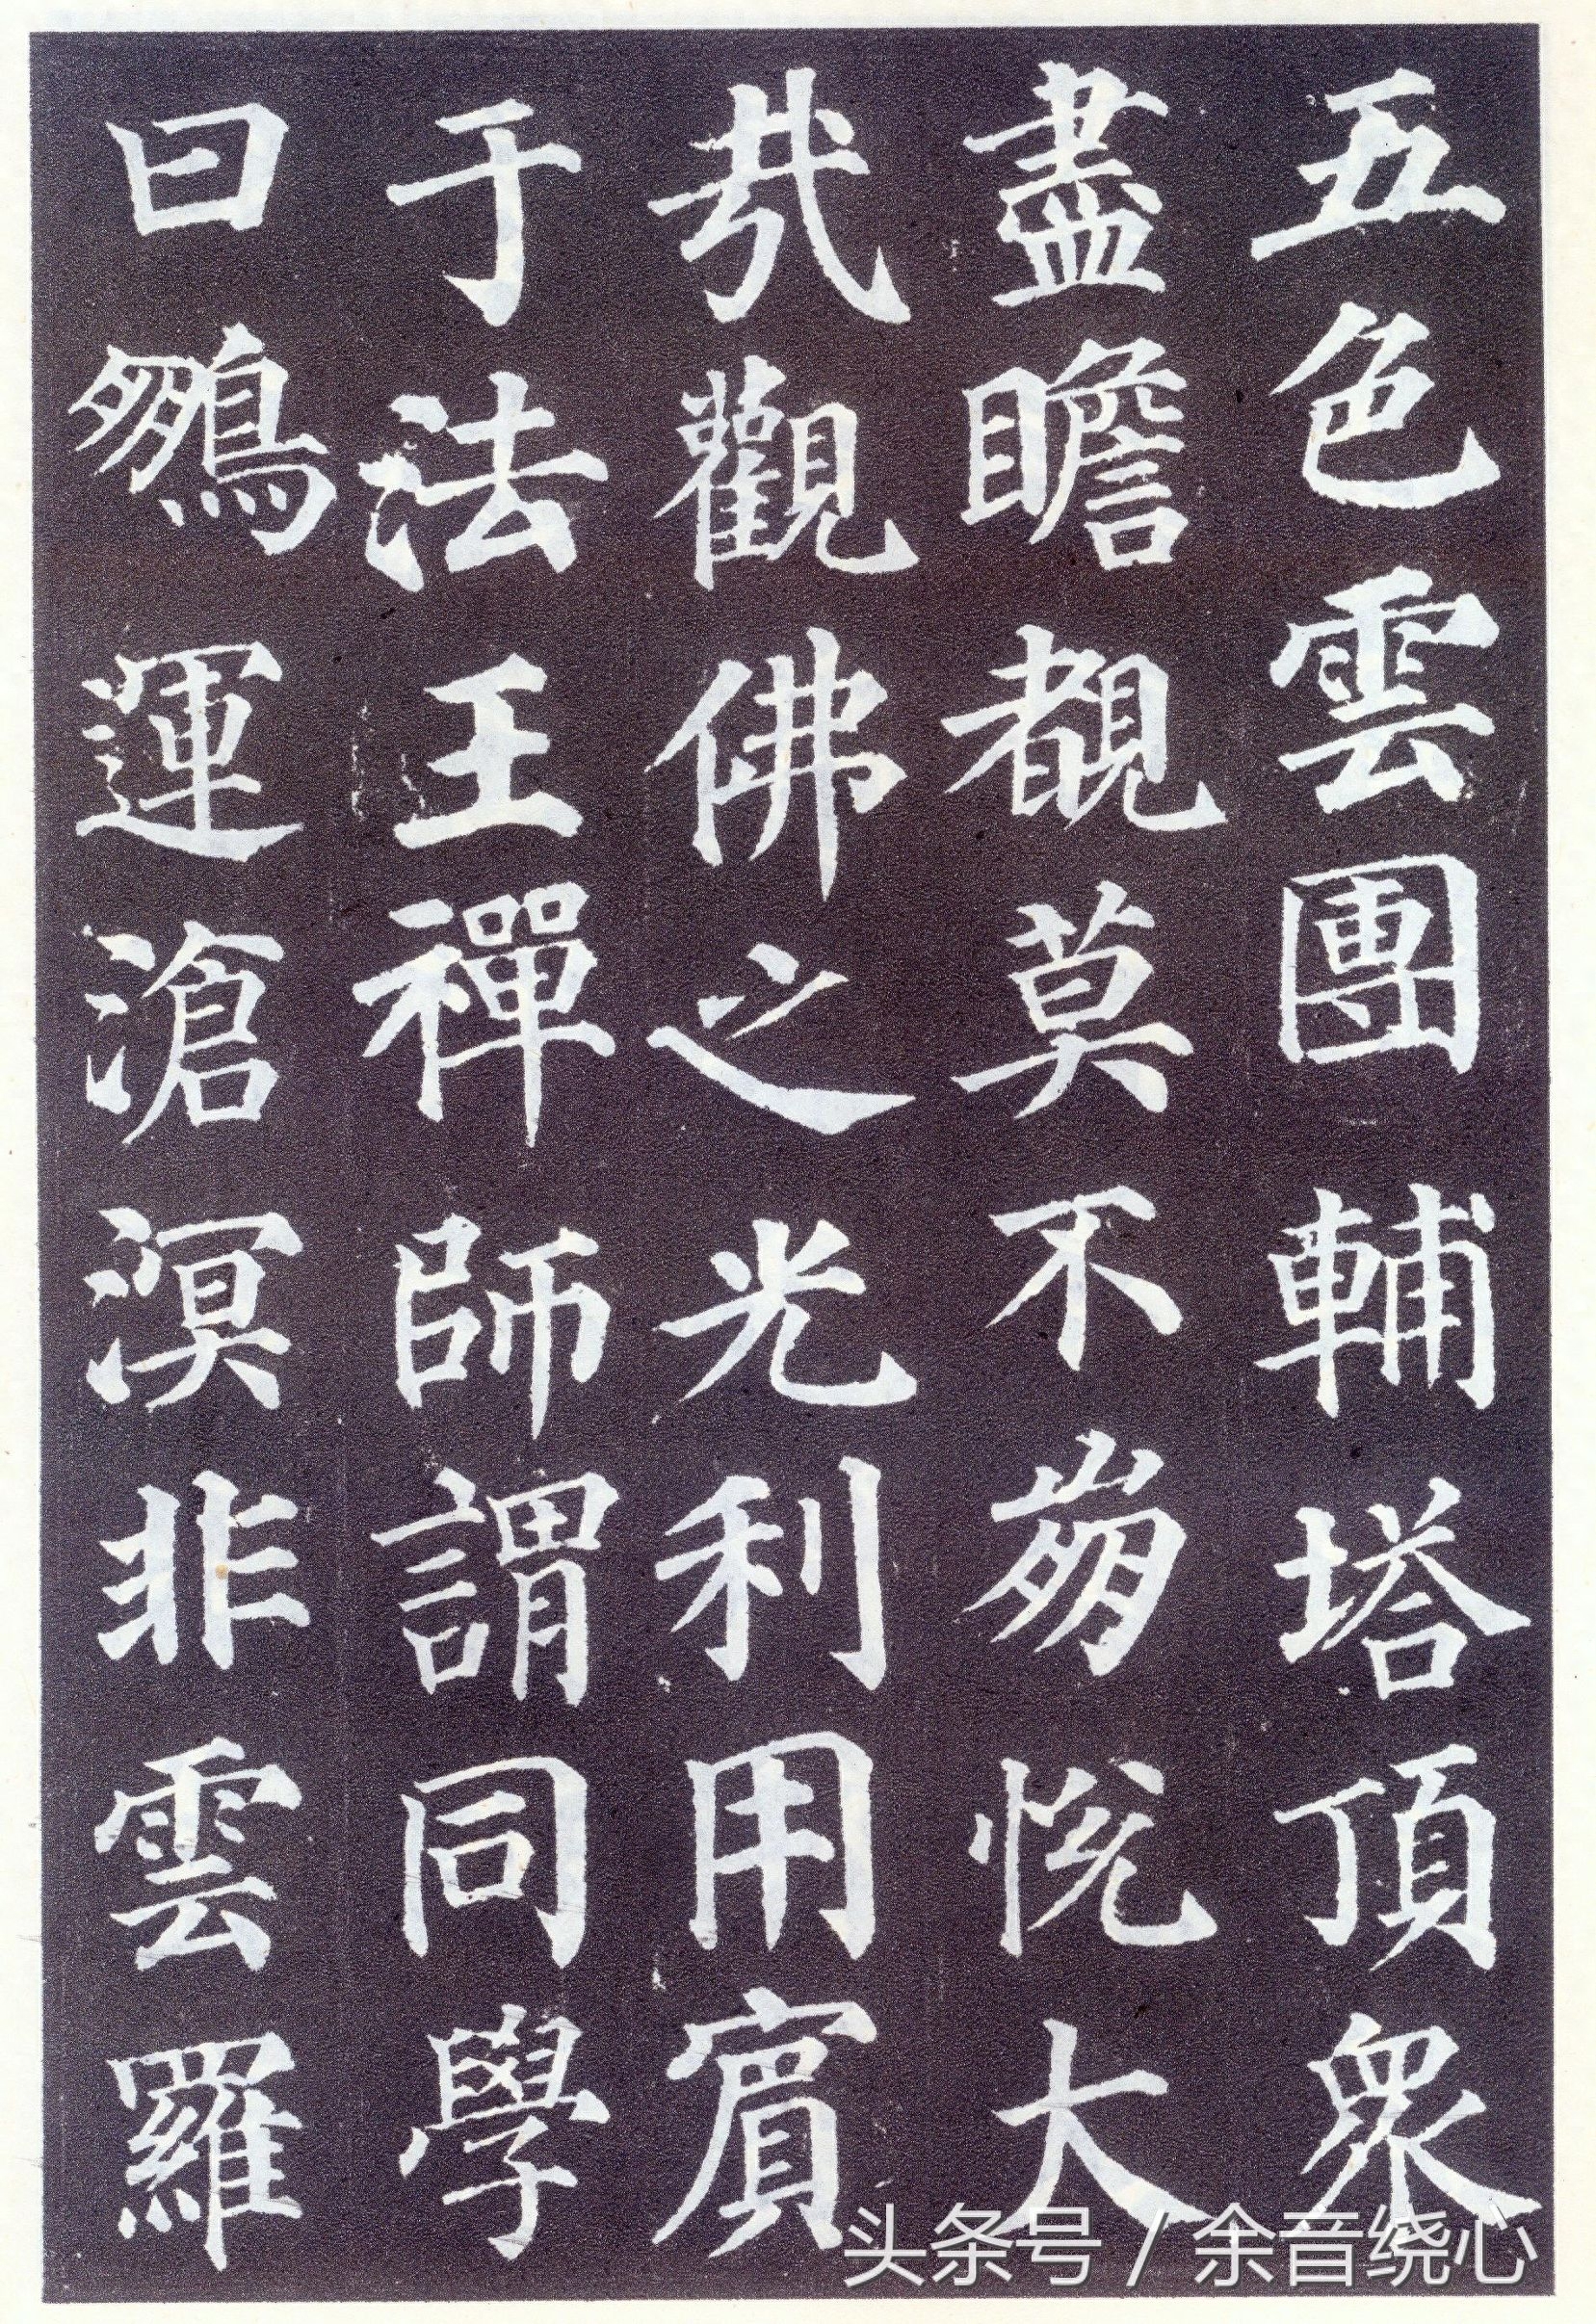 五色雲團輔塔頂眾
盡瞻覩莫不崩悅大
哉觀佛之光利用賓
于法王禪師謂同學
曰鵷運滄溟非雲羅
头条号 / 余音绕心